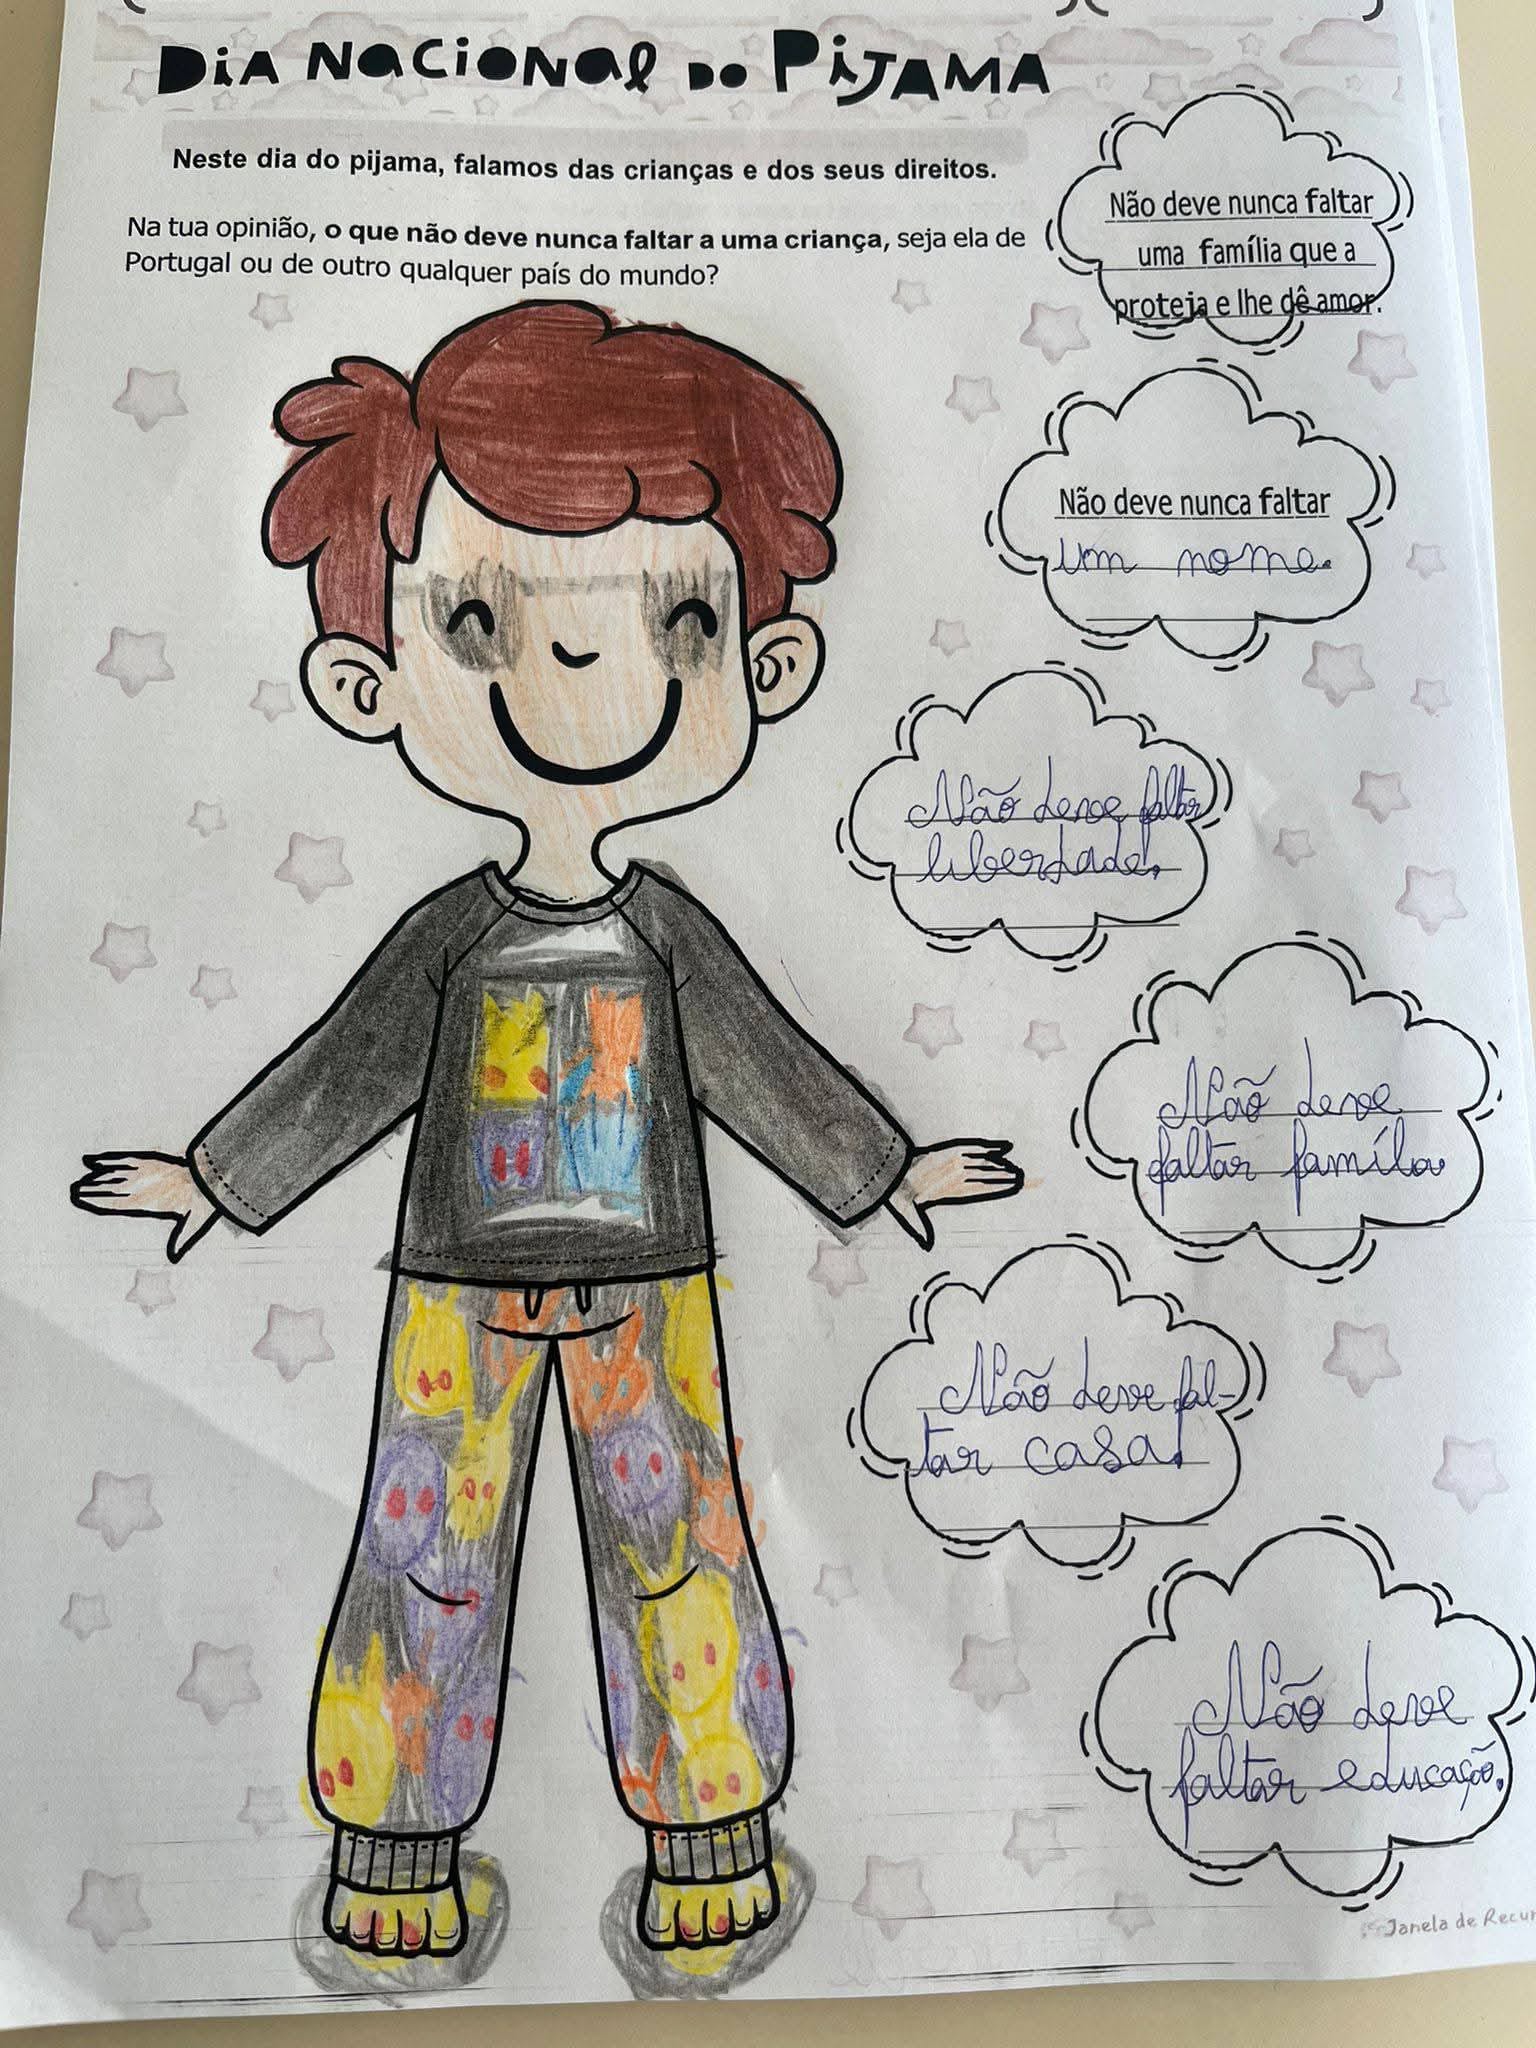 Dia Nacional do Pijama
Neste dia do pijama, falamos das crianças e dos seus direitos.
Na tua opinião, o que não deve nunca faltar a uma criança, seja ela de
Portugal ou de outro qualquer país do mundo?
Não deve nunca faltar
uma família que a
proteja e lhe dê amor.
Não deve nunca faltar
um nome.
Não deve faltar
liberdade.
Não deve
faltar família
Não deve fal-
tar casa.
Não deve
faltar educação.
Janela de